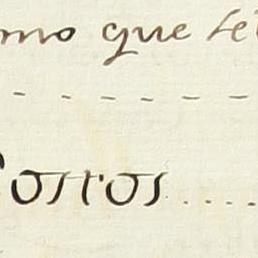 mo que se
ostos....